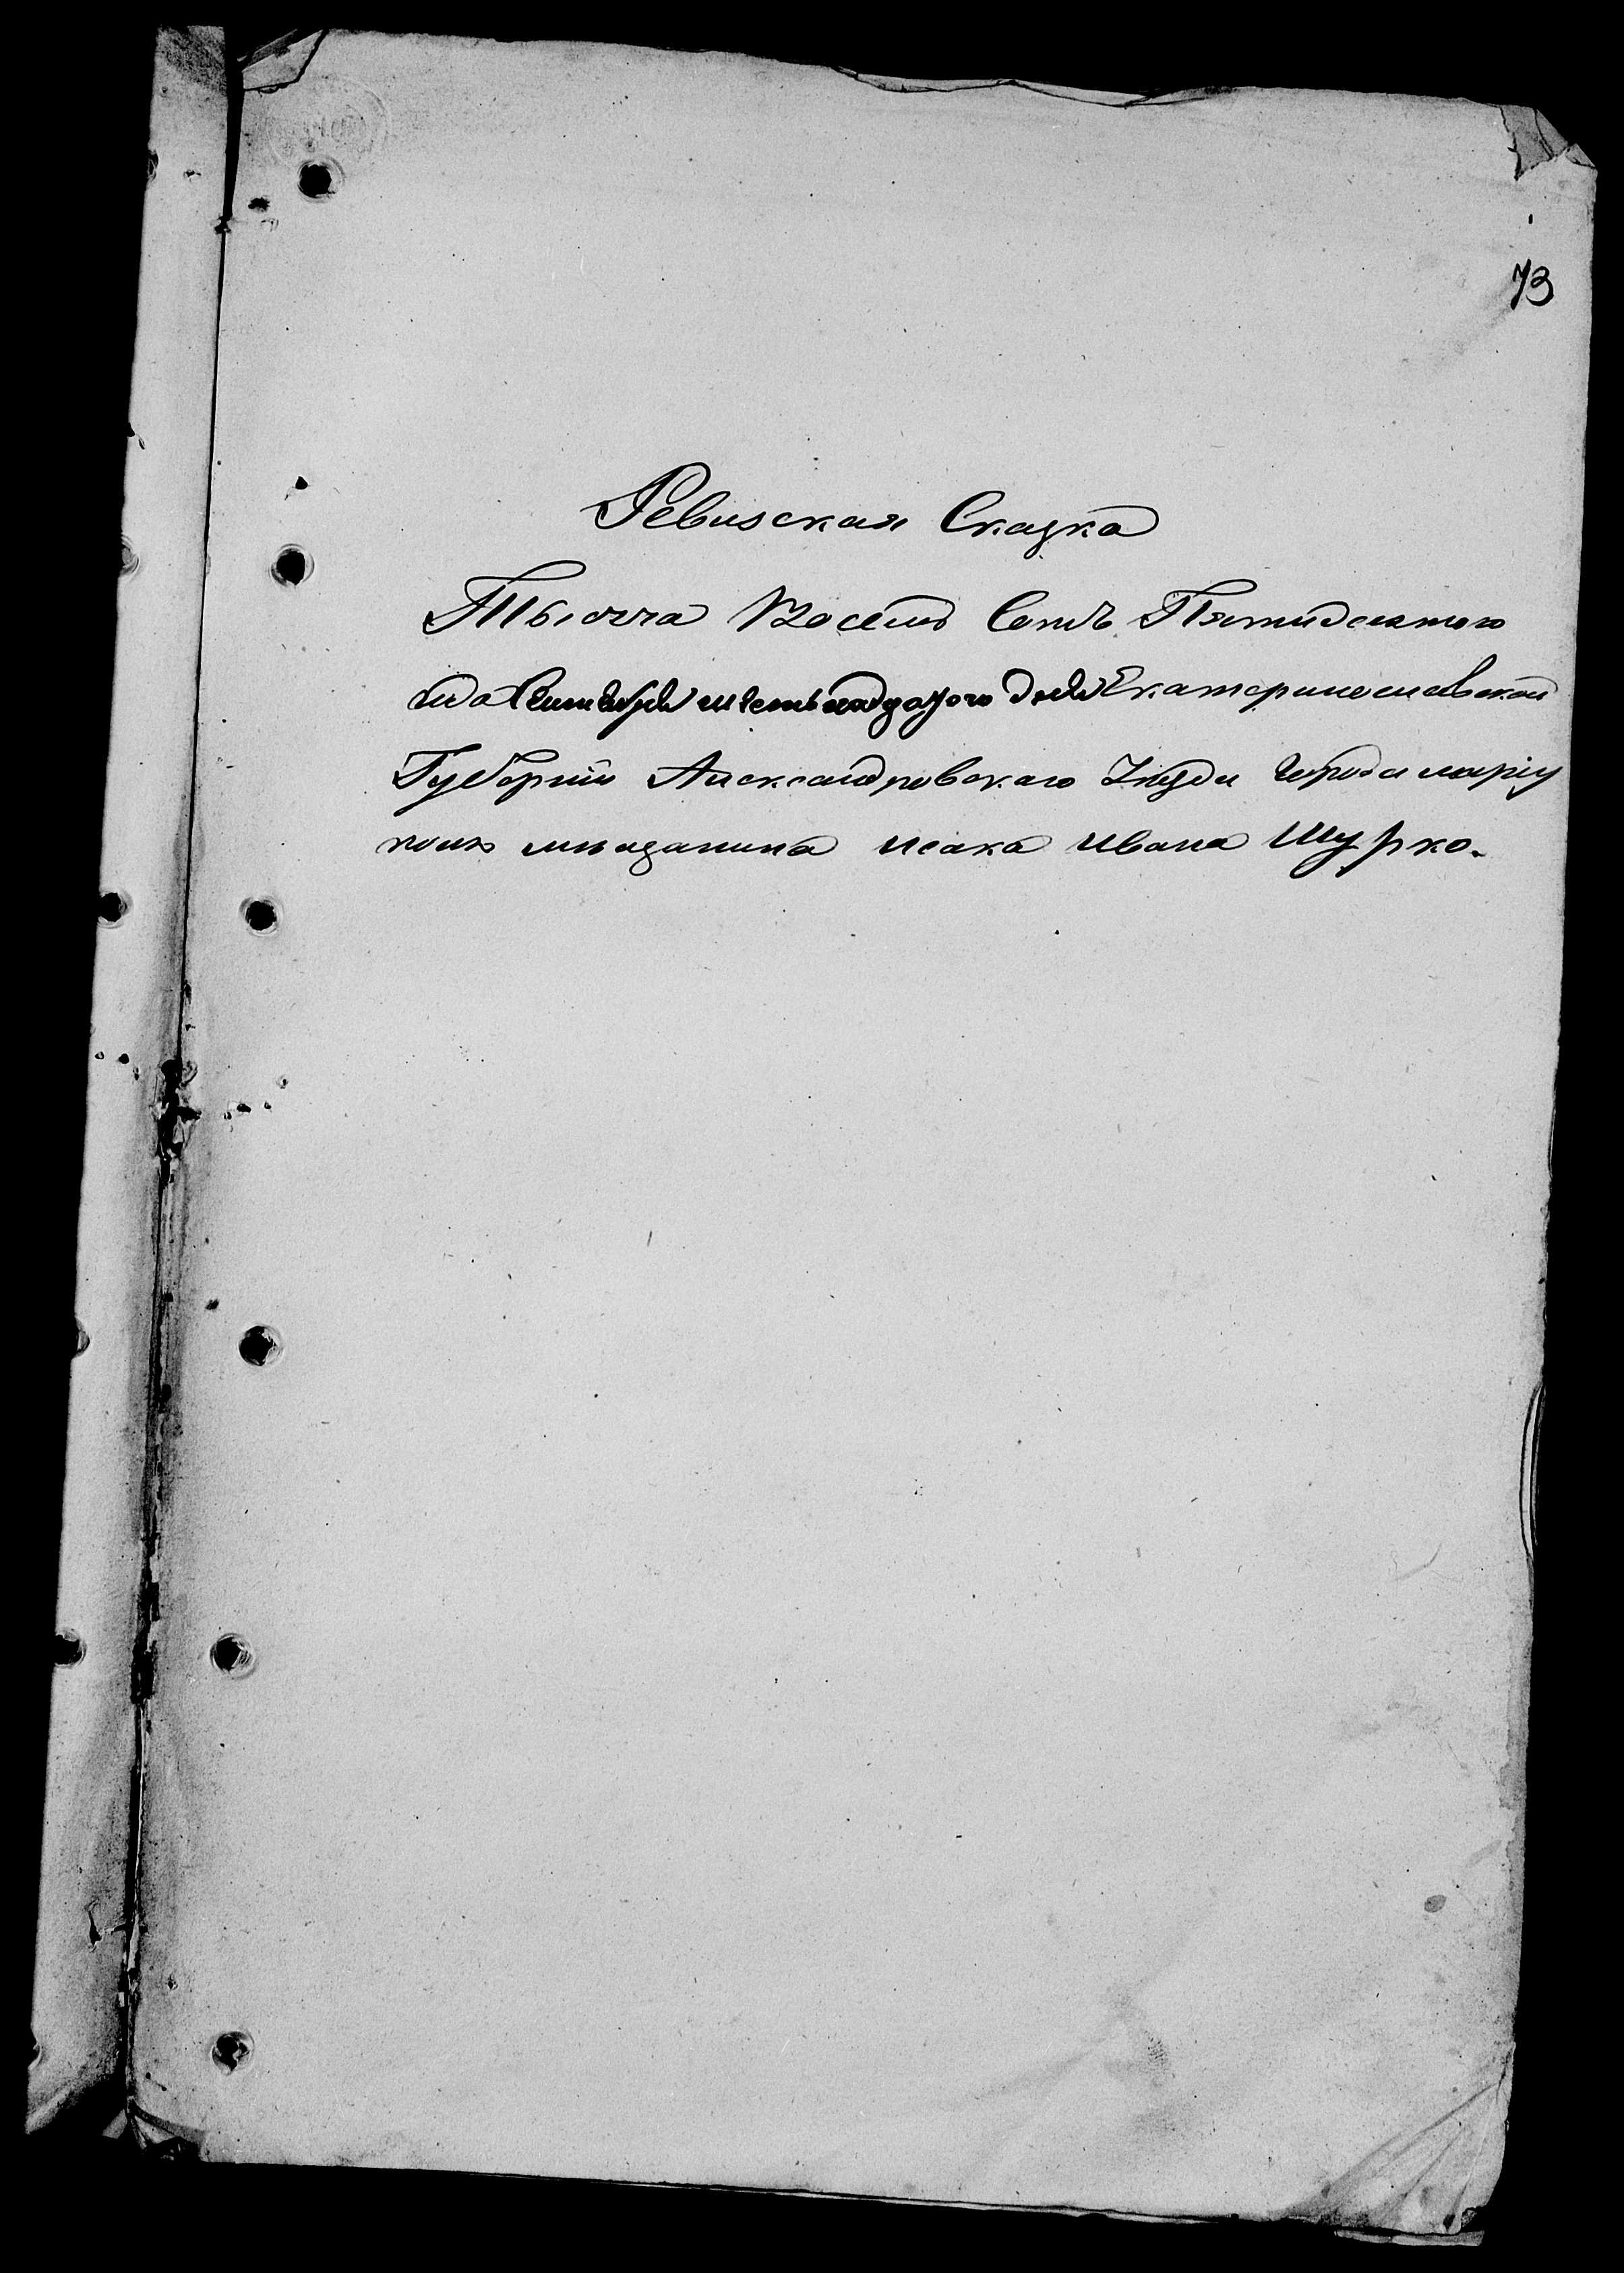 73
Ревизская Сказка
Тысяча Восемь Сотъ Пятидесятого
года Сентября шестнадцатого дня Екатеринославской
Губернии Александровского Уезда Города мариу
поля мещанина исака ивана Шурко.